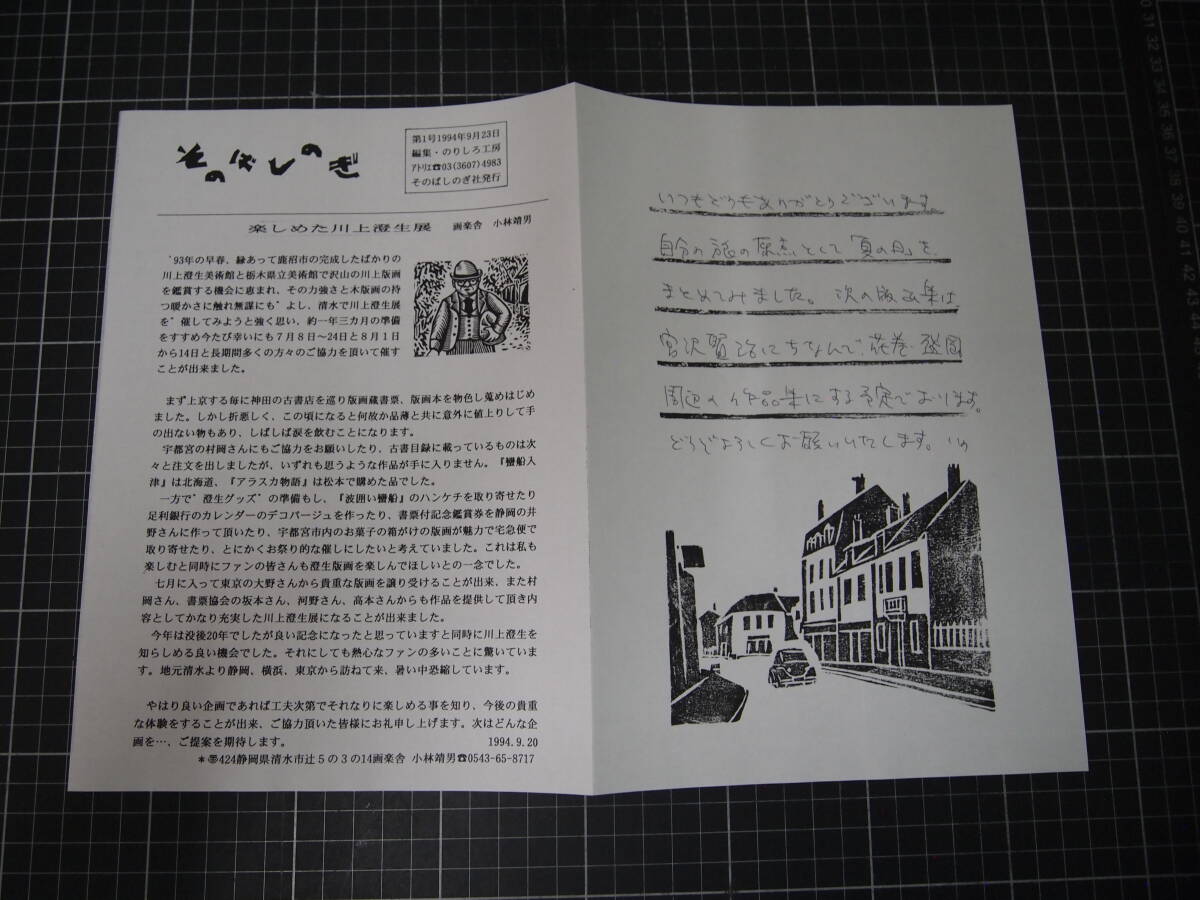 そのばしのぎ
第1号1994年9月23日
編集・のりしろ工房
アトリエ☎03(3607)4983
そのばしのぎ社発行
楽しめた川上澄生展 画楽舎 小林靖男
'93年の早春、縁あって鹿沼市の完成したばかりの
川上澄生美術館と栃木県立美術館で沢山の川上版画
を鑑賞する機会に恵まれ、その力強さと木版画の持
つ暖かさに触れ無謀にも〝よし、清水で川上澄生展
を〝催してみようと強く思い、約一年三カ月の準備
をすすめ今たび幸いにも７月８日～24日と８月１日
から14日と長期間多くの方々のご協力を頂いて催す
ことが出来ました。
まず上京する毎に神田の古書店を巡り版画蔵書票、版画本を物色し蒐めはじめ
ました。しかし折悪しく、この頃になると何故か品薄と共に意外に値上りして手
の出ない物もあり、しばしば涙を飲むことになります。
宇都宮の村岡さんにもご協力をお願いしたり、古書目録に載っているものは次
々と注文を出しましたが、いずれも思うような作品が手に入りません。『蠻船入
津』は北海道、『アラスカ物語』は松本で購めた品でした。
一方で〝澄生グッズ〝の準備もし、『波囲い蠻船』のハンケチを取り寄せたり
足利銀行のカレンダーのデコパージュを作ったり、書票付記念鑑賞券を静岡の井
野さんに作って頂いたり、宇都宮市内のお菓子の箱がけの版画が魅力で宅急便で
取り寄せたり、とにかくお祭り的な催しにしたいと考えていました。これは私も
楽しむと同時にファンの皆さんも澄生版画を楽しんでほしいとの一念でした。
七月に入って東京の大野さんから貴重な版画を譲り受けることが出来、また村
岡さん、書票協会の坂本さん、河野さん、高本さんからも作品を提供して頂き内
容としてかなり充実した川上澄生展になることが出来ました。
今年は没後20年でしたが良い記念になったと思っていますと同時に川上澄生を
知らしめる良い機会でした。それにしても熱心なファンの多いことに驚いていま
す。地元清水より静岡、横浜、東京から訪ねて来、暑い中恐縮しています。
やはり良い企画であれば工夫次第でそれなりに楽しめる事を知り、今後の貴重
な体験をすることが出来、ご協力頂いた皆様にお礼申し上げます。次はどんな企
画を…、ご提案を期待します。 1994.9.20
＊〶424静岡県清水市辻５の３の14画楽舎 小林靖男☎0543-65-8717
いつもどうもありがとうございます。
自分の旅の原点として「夏の日」を
まとめてみました。次の版画集は
宮沢賢治にちなんで、花巻・盛岡
周辺の作品集にする予定であります。
どうぞよろしくお願いいたします。